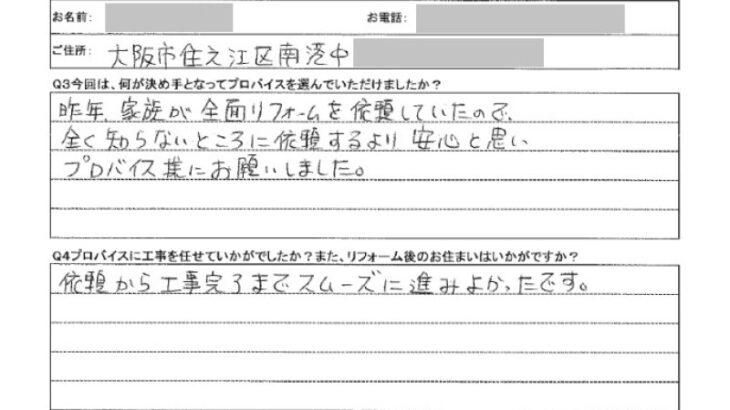 お名前: お電話:
ご住所: 大阪市住之江区南港中
Q3今回は、何が決め手となってプロバイスを選んでいただけましたか？
昨年、家族が全面リフォームを依頼していたので、
全く知らないところに依頼するより安心と思い
プロバイス様にお願いしました。
Q4プロバイスに工事を任せていかがでしたか？また、リフォーム後のお住まいはいかがですか？
依頼から工事完了までスムーズに進みよかったです。